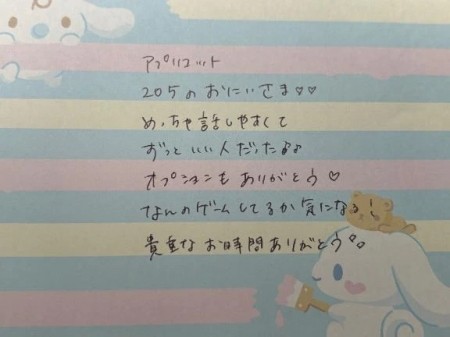 アプリコット
205のおにいさま♡♡
めっちゃ話しやすくて
ずっといい人だった♪♪
オプションもありがとう♡
なんのゲームしてるか気になる!
貴重なお時間ありがとう♡♡